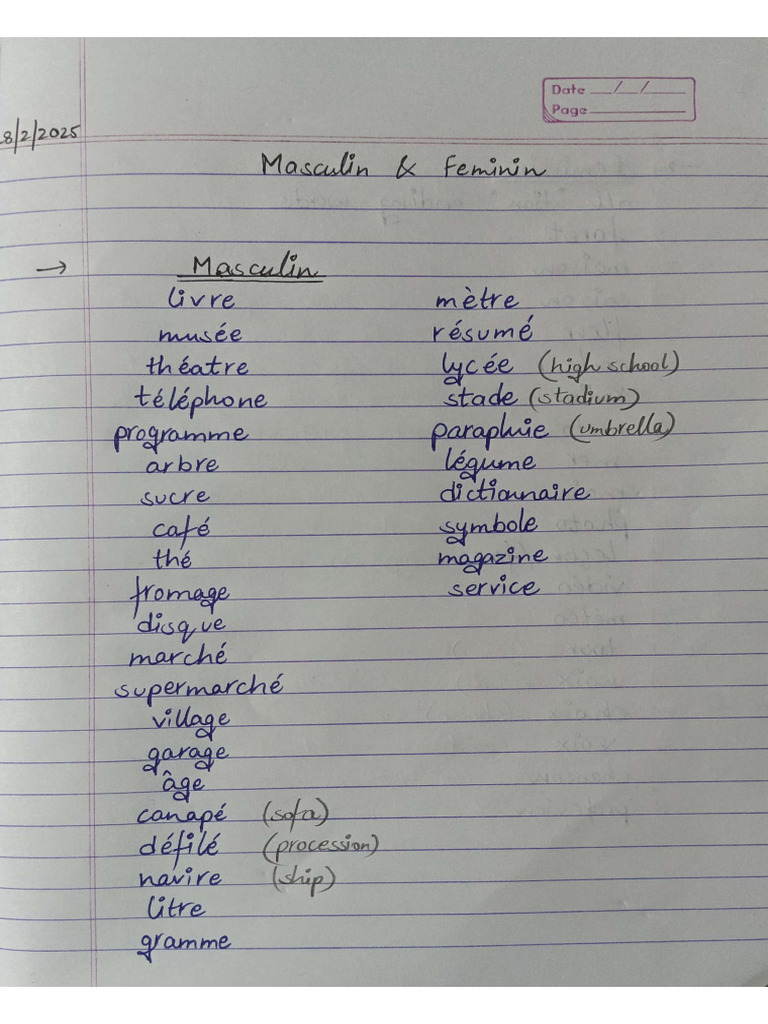 Date __/__/__
Page
8/2/2025
Masculin & Feminin
→ Masculin
livre
musée
théatre
téléphone
programme
arbre
sucre
café
thé
fromage
disque
marché
supermarché
village
garage
âge
canapé (sofa)
défilé (procession)
navire (ship)
litre
gramme
mètre
résumé
lycée (high school)
stade (stadium)
parapluie (umbrella)
légume
dictionnaire
symbole
magazine
service